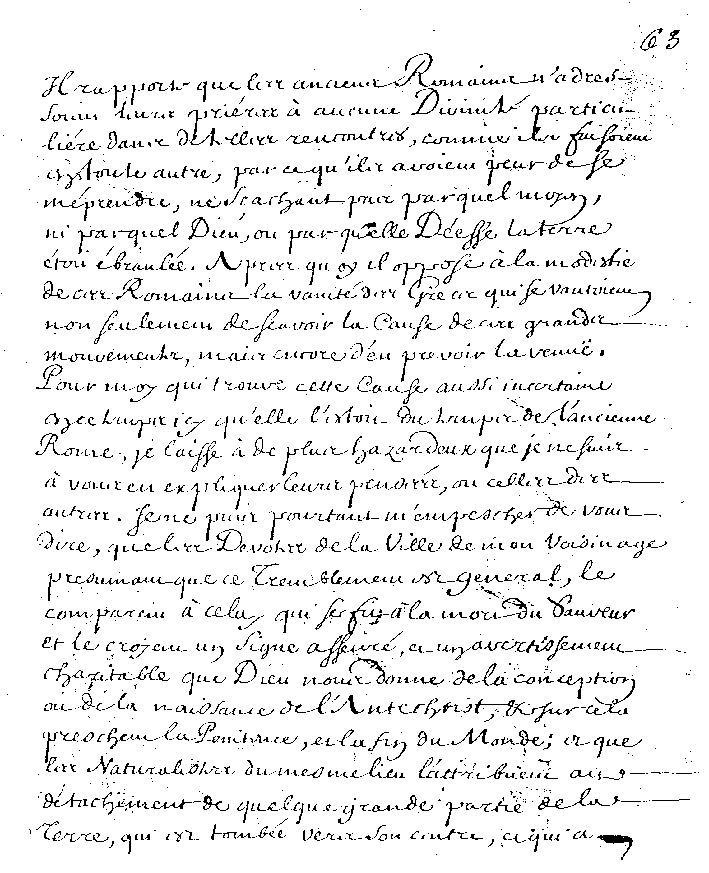 63
Il rapporte que les anciens Romains n'adres-
soient leurs priéres à aucune Divinité particu-
liére dans de telles rencontres, comme ils faisoient
en toute autre, parce qu'ils avoient peur de se
méprendre, ne sçachant pas par quel moyen,
ni par quel Dieu, ou par quelle Déesse la terre
étoit ébranlée. Aprés quoy il oppose à la modestie
de ces Romains la vanité des Grecs qui se vantoient
non seulement de sçavoir la Cause de ces grands
mouvements, mais encore d'en prevoir la venuë.
Pour moy qui trouve cette Cause aussi incertaine
en ce temps icy qu'elle l'estoit du temps de l'ancienne
Rome, je laisse à de plus hazardeux que je ne suis
à vous en expliquer leurs pensées, ou celles des
autres. Je ne puis pourtant m'empescher de vous
dire, que les Devotes de la Ville de mon Voisinage
presumant que ce Tremblement est general, le
comparent à celuy qui se fit à la mort du Sauveur
et le croyent un signe asseuré, et un avertissement
charitable que Dieu nous donne de la conception
ou de la naissance de l'Antechrist, & sur cela
preschent la Penitence, et la fin du Monde; et que
les Naturalistes du mesme lieu l'attribuent au
détachement de quelque grande partie de la
Terre, qui est tombée vers son centre, et qui a